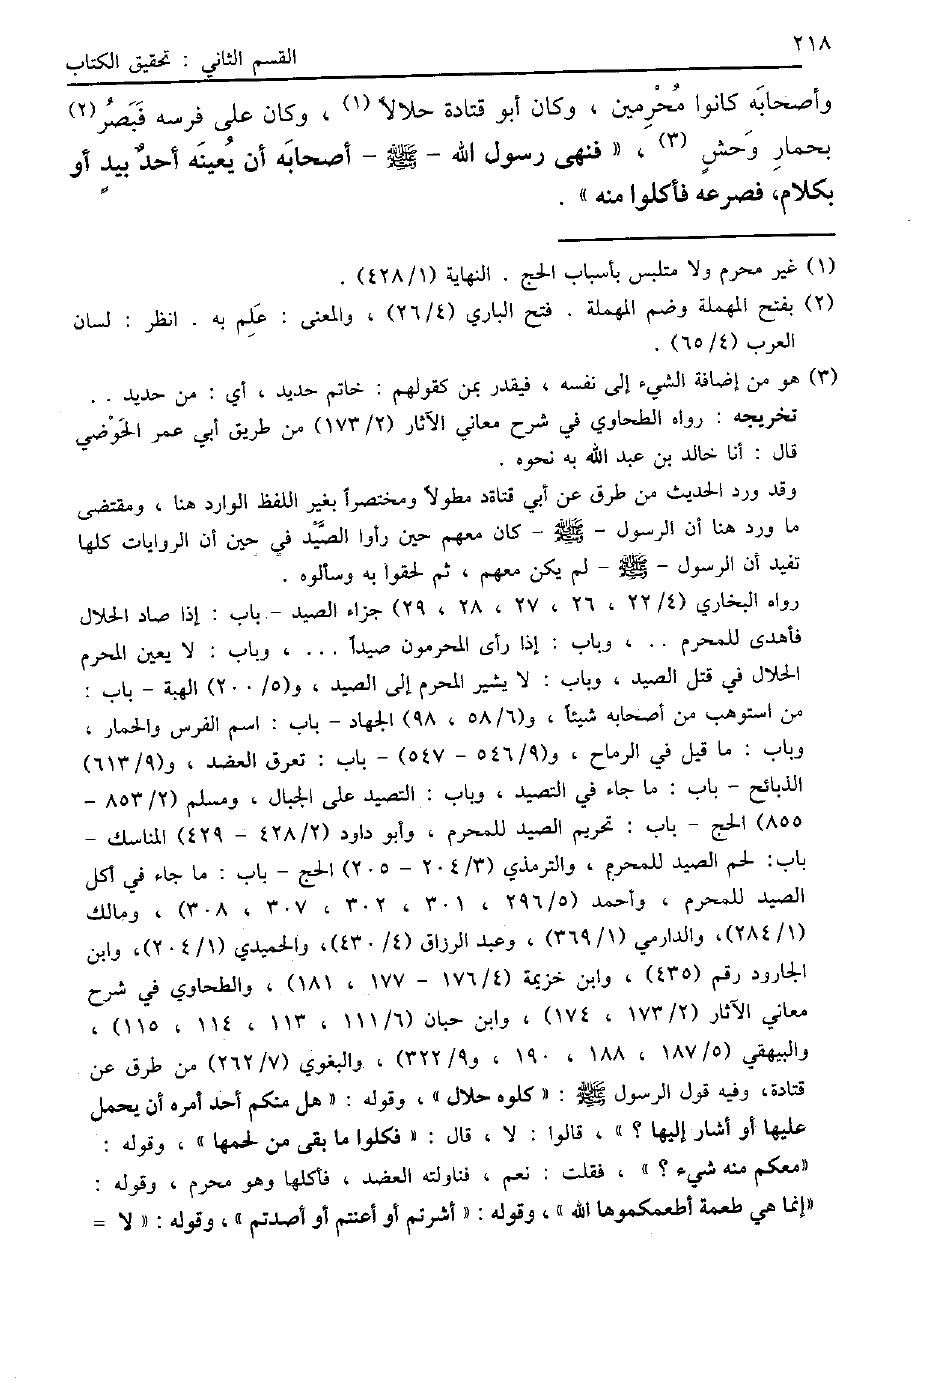 ٢١٨
القسم الثاني : تحقيق الكتاب
وأصحابَه كانوا مُحْرِمين ، وكان أبو قتادة حلالاً (١) ، وكان على فرسه فَبَصُرَ (٢)
بحمارِ وَحشٍ (٣) ، « فنهى رسول الله - ﷺ - أصحابَه أن يُعينَه أحدٌ بيدٍ أو
بكلامٍ، فصرعه فأكلوا منه » .
(١) غير محرم ولا متلبس بأسباب الحج . النهاية (٤٢٨/١) .
(٢) بفتح المهملة وضم المهملة . فتح الباري (٢٦/٤) ، والمعنى : عَلِم به . انظر : لسان
العرب (٦٥/٤) .
(٣) هو من إضافة الشيء إلى نفسه ، فيقدر بمن كقولهم : خاتم حديد ، أي : من حديد . .
تخريجه : رواه الطحاوي في شرح معاني الآثار (١٧٣/٢) من طريق أبي عمر الحَوْضي
قال : أنا خالد بن عبد الله به نحوه .
وقد ورد الحديث من طرق عن أبي قتاةد مطولاً ومختصراً بغير اللفظ الوارد هنا ، ومقتضى
ما ورد هنا أن الرسول - ﷺ - كان معهم حين رأوا الصَّيْد في حين أن الروايات كلها
تفيد أن الرسول - ﷺ - لم يكن معهم ، ثم لحقوا به وسألوه .
رواه البخاري (٢٢/٤ ، ٢٦ ، ٢٧ ، ٢٨ ، ٢٩) جزاء الصيد - باب : إذا صاد الحلال
فأهدى للمحرم .. ، وباب : إذا رأى المحرمون صيداً ... ، وباب : لا يعين المحرم
الحلال في قتل الصيد ، وباب : لا يشير المحرم إلى الصيد ، و(٢٠٠/٥) الهبة - باب :
من استوهب من أصحابه شيئاً ، و(٥٨/٦ ، ٩٨) الجهاد - باب : اسم الفرس والحمار ،
وباب : ما قيل في الرماح ، و(٥٤٦/٩ - ٥٤٧) - باب : تعرق العضد ، و(٦١٣/٩)
الذبائح - باب : ما جاء في التصيد ، وباب : التصيد على الجبال ، ومسلم (٨٥٣/٢ -
٨٥٥) الحج - باب : تحريم الصيد للمحرم ، وأبو داود (٤٢٨/٢ - ٤٢٩) المناسك -
باب: لحم الصيد للمحرم ، والترمذي (٢٠٤/٣ - ٢٠٥) الحج - باب : ما جاء في أكل
الصيد للمحرم ، وأحمد (٢٩٦/٥ ، ٣٠١ ، ٣٠٢ ، ٣٠٧ ، ٣٠٨) ، ومالك
(٢٨٤/١)، والدارمي (٣٦٩/١) ، وعبد الرزاق (٤٣٠/٤)، والحميدي (٢٠٤/١)، وابن
الجارود رقم (٤٣٥) ، وابن خزيمة (١٧٦/٤ - ١٧٧ ، ١٨١) ، والطحاوي في شرح
معاني الآثار (١٧٣/٢ ، ١٧٤) ، وابن حبان (١١١/٦ ، ١١٣ ، ١١٤ ، ١١٥) ،
والبيهقي (١٨٧/٥ ، ١٨٨ ، ١٩٠ ، و٣٢٢/٩) ، والبغوي (٢٦٢/٧) من طرق عن
قتادة، وفيه قول الرسول ﷺ : « كلوه حلال » ، وقوله : « هل منكم أحد أمره أن يحمل
عليها أو أشار إليها ؟ » ، قالوا : لا ، قال : « فكلوا ما بقى من لحمها » ، وقوله :
«معكم منه شيء ؟ » ، فقلت : نعم ، فناولته العضد ، فأكلها وهو محرم ، وقوله :
«إنما هي طعمة أطعمكموها الله » ، وقوله : « أشرتم أو أعنتم أو أصدتم » ، وقوله : « لا =